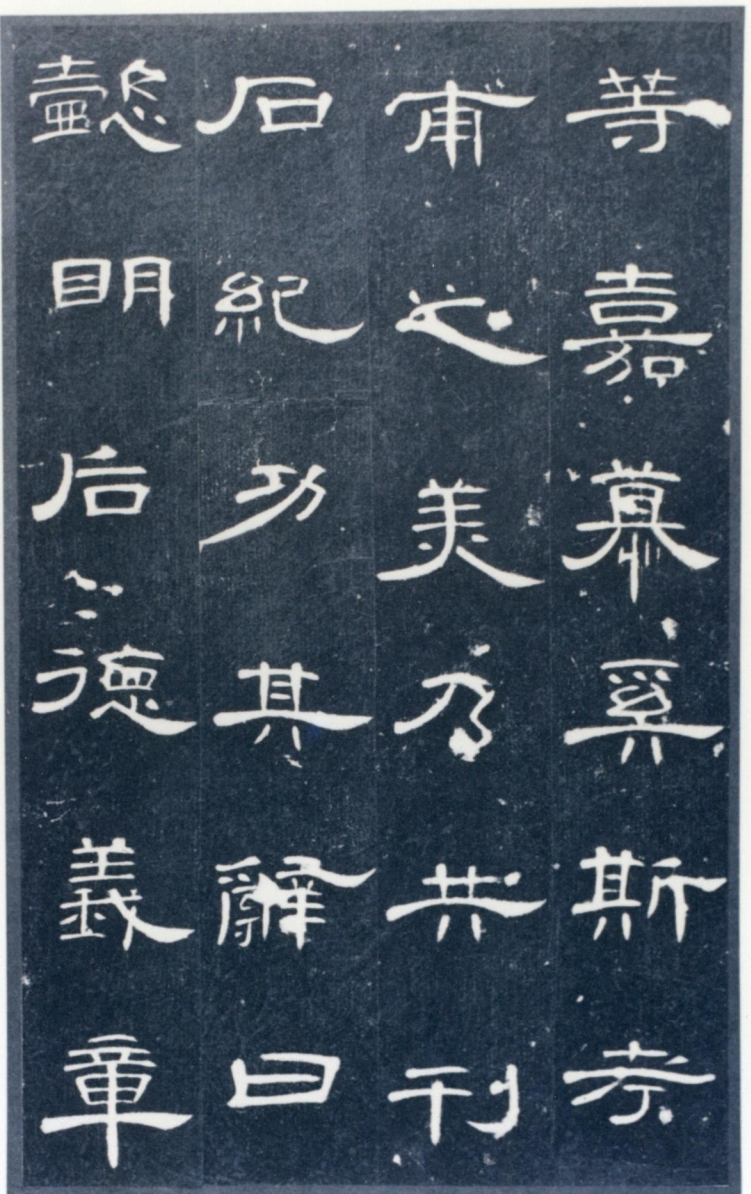 等嘉慕奚斯考
甫之美乃共刊
石紀功其辭曰
懿眀后德義章